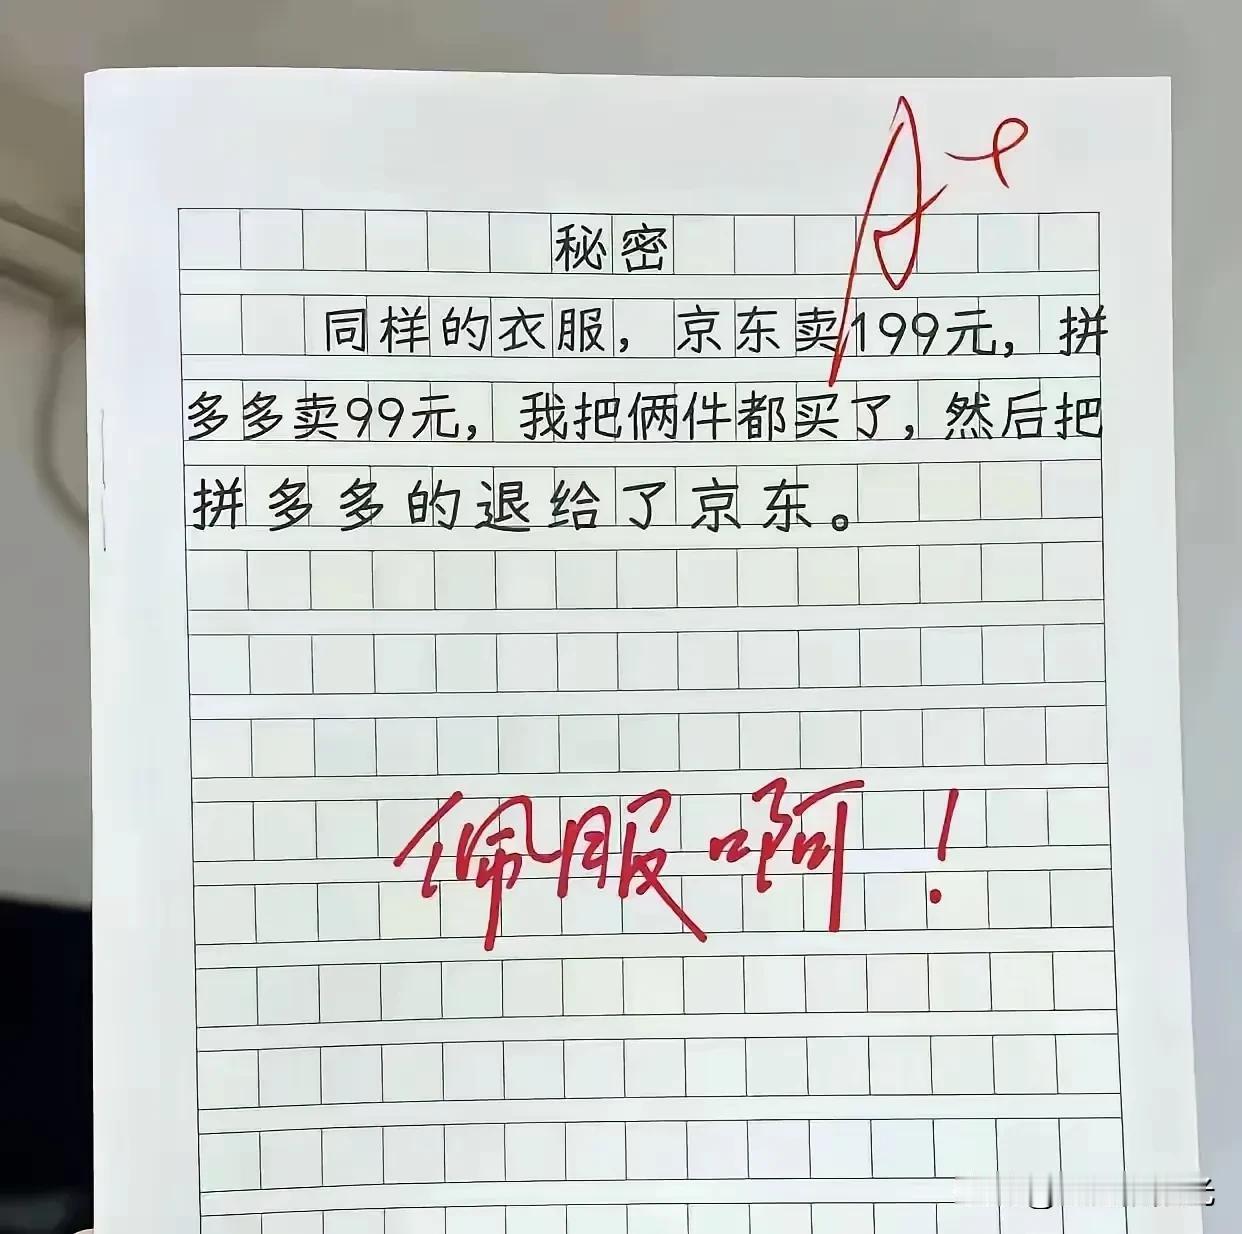 A+
秘密
同样的衣服，京东卖199元，拼
多多卖99元，我把俩件都买了，然后把
拼多多的退给了京东。
佩服啊！